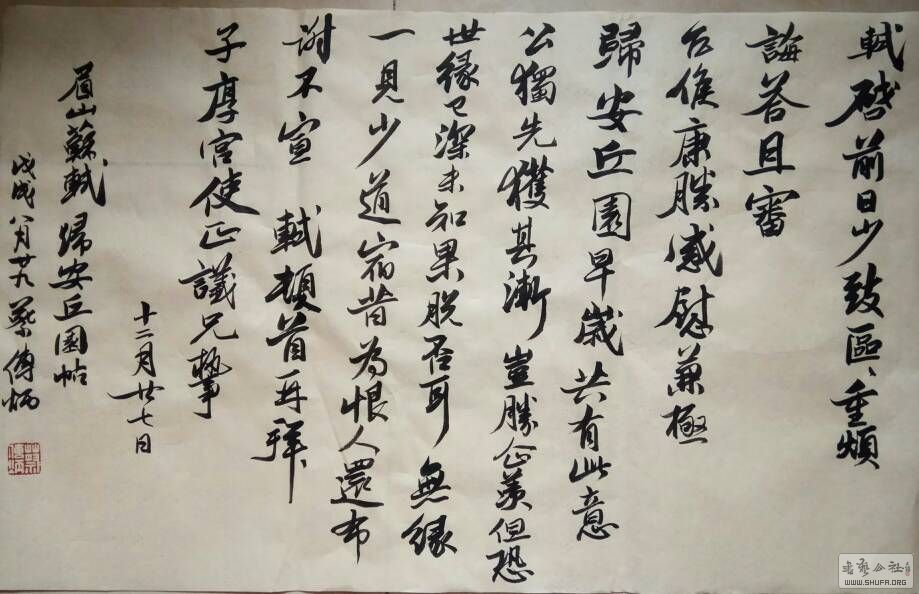 軾啓前日少致區、重煩
誨荅且審
台候康勝感慰兼極
歸安丘園早歲共有此意
公獨先獲其漸豈勝企羨但恐
世縁已深未知果脱否耳無縁
一見少道宿昔為恨人還布
謝不宣 軾頓首再拜
子厚宫使正議兄執事
十二月廿七日
眉山蘇軾歸安丘園帖
戊戌八月廿九蔡傳炳
書藝公社
WWW.SHUFA.ORG